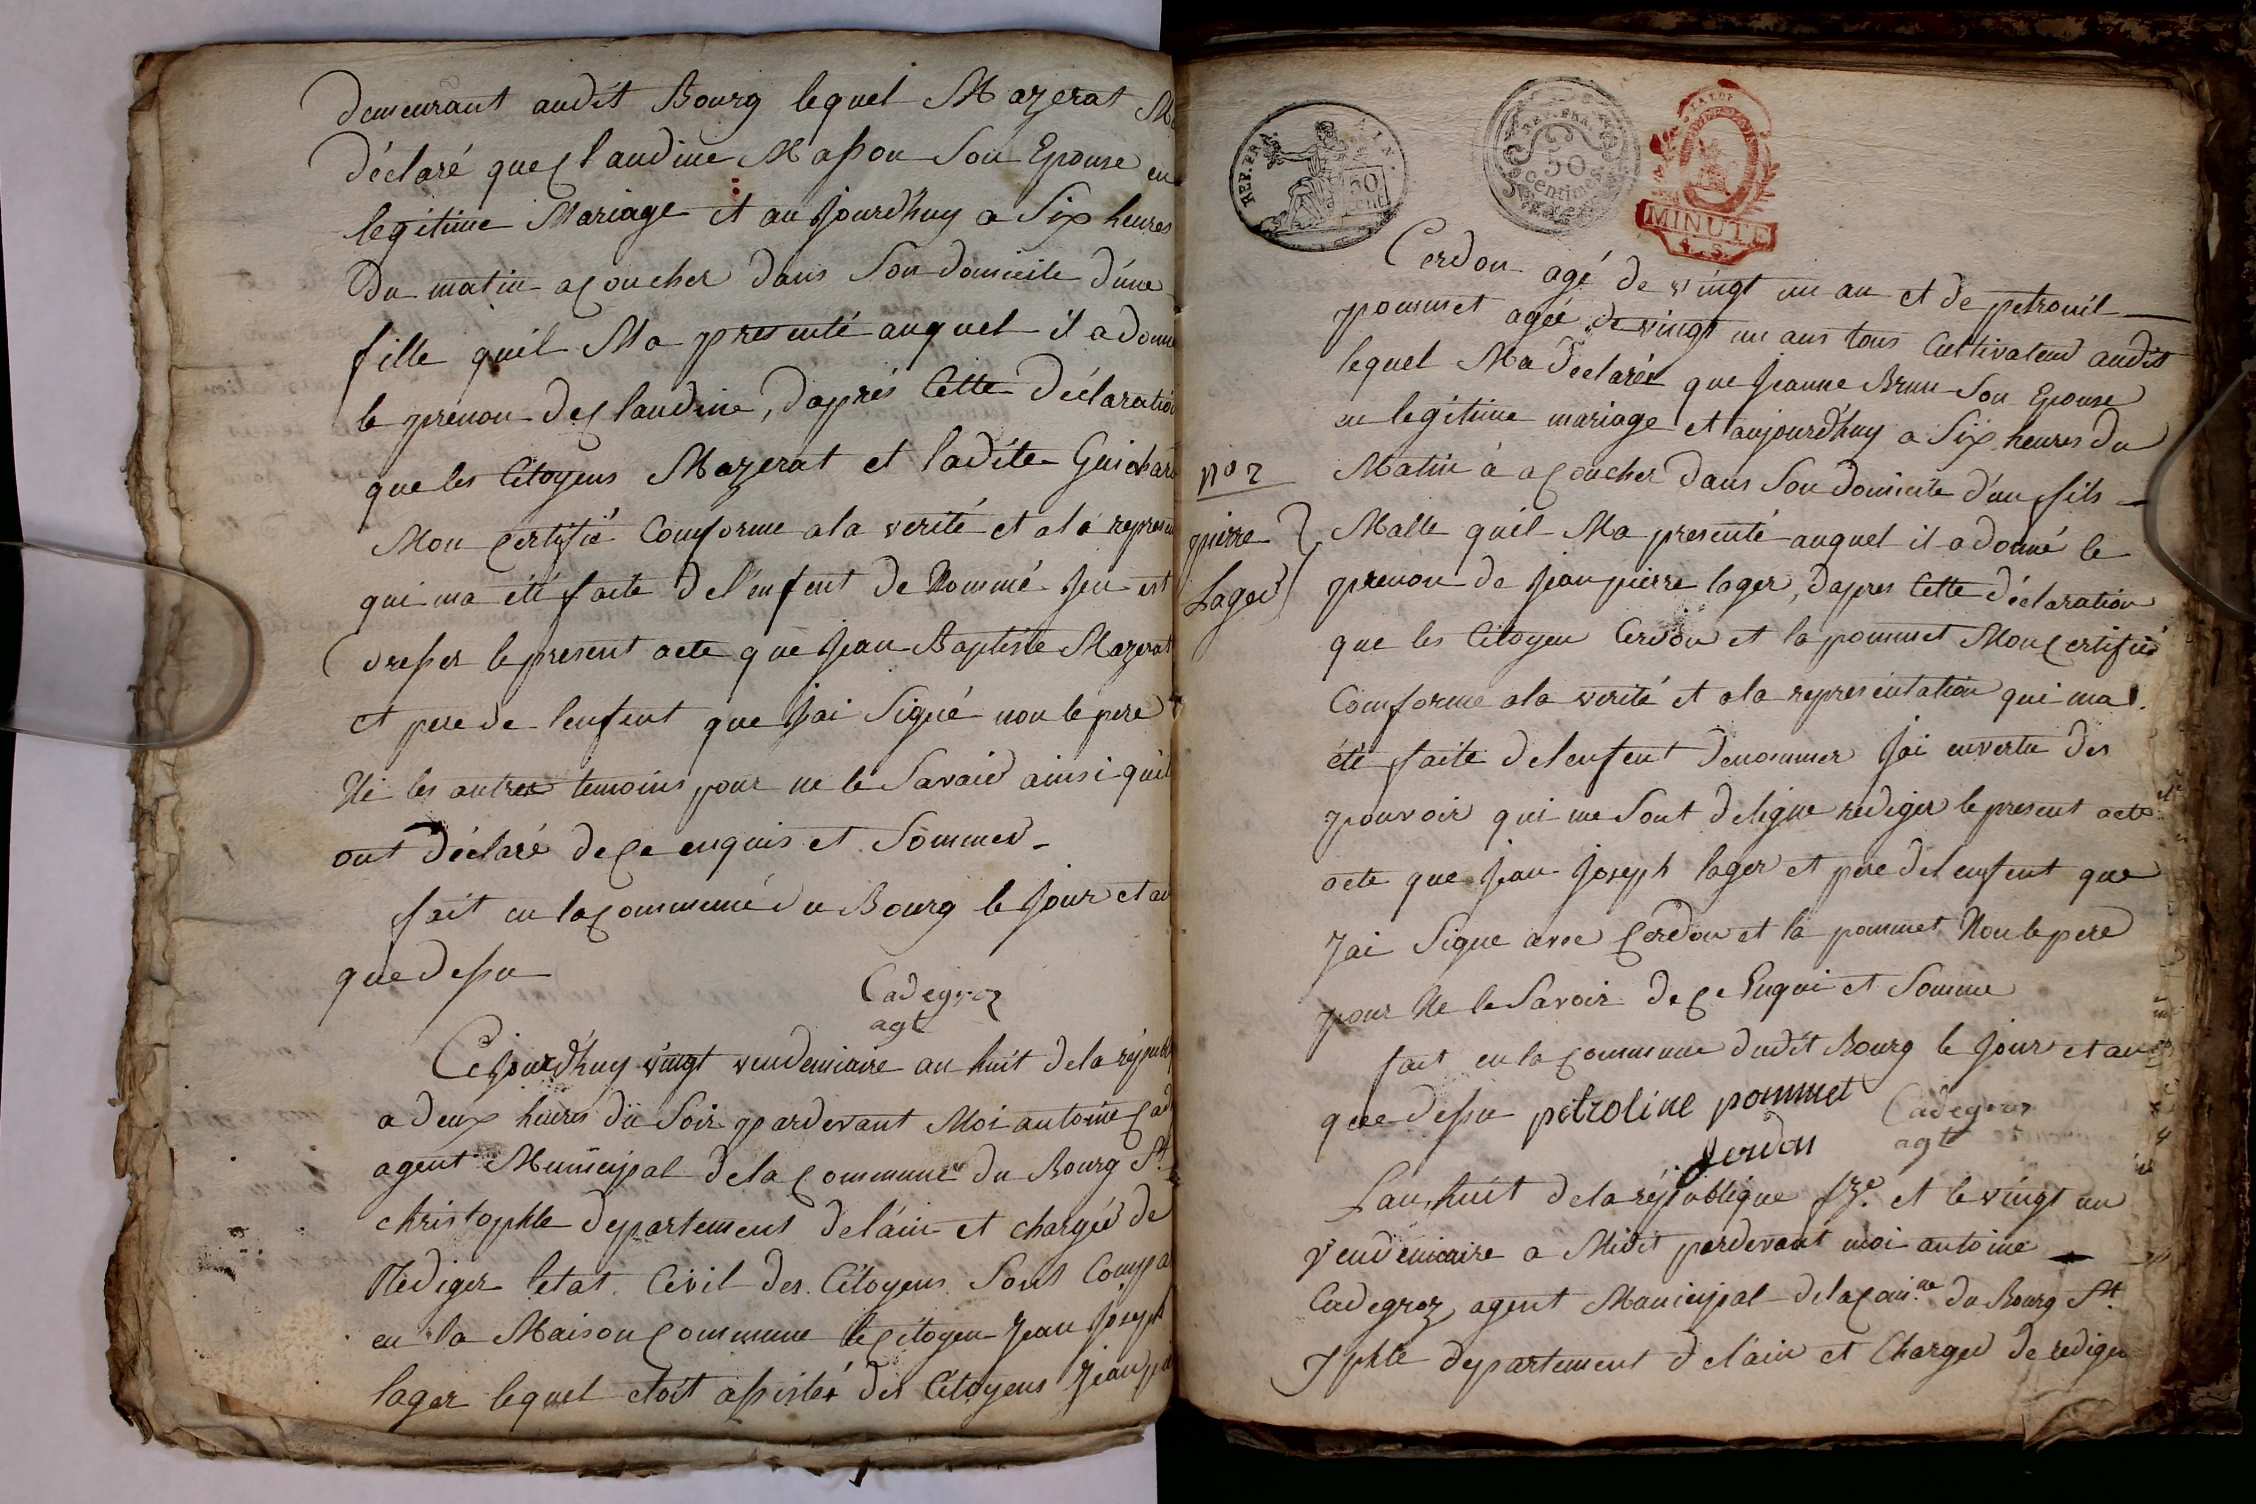 demeurant audit Bourg lequel Mazerat M
déclaré que Claudine Masson Son Epouse en
legitime Mariage et au Jourdhuy a Six heures
Du matin acoucher dans Son domicile d'une
fille quil Ma presenté auquel il a donné
le prenon de Claudine, daprés Cette déclaration
que les Citoyens Mazerat et ladite Guichard
Mon Certifié Conforme a la verité et a la represen
qui ma été faite de l'enfent de Nommé Jen est
dresser le present acte que Jean Baptiste Mazerat
et pere de lenfent que Jai Signé non le pere
Ni les autres temoins pour ne le Savair ainsi quil
ont déclaré de Ce enquis et Sommer
fait en la Commune du Bourg le Jour et an
que dessu
Cadegroz
agt
Cejourdhuy vingt vendemiaire an huit de la répub
a deux heures du Soir pardevant Moi antoine Cad
agent Municipal de la Commune du Bourg St
christophle departement de lain et chargéé de
Rediger letat Civil des Citoyens Sont Compa
en la Maison Commune le Citoyen Jean Joseph
lager lequel etoit assister des Citoyens Jean
REP. FRA.
AIN.
50
cent
REP. FRA.
50
centimes
LA LOI
MINUTE
Cerdon agé de vingt un an et de petronil
pommet agée de vingt un ans tous Cultivateur audit
lequel Ma déclaréé que Jeanne Brun Son Epouse
en legitime mariage et aujourdhuy a Six heures du
Matin à acoucher dans Son domicile d'un fils
no 2
pierre
Lager
Malle quil Ma presenté auquel il a donné le
prenon de Jean pierre lager, dapres Cette déclaration
que les Citoyen Cerdon et la pommet Mon Certifié
Conforme a la verité et a la representation qui ma
été faite de lenfent denommer Jai envertu des
pouvoir qui me Sont deligue rediger le present acte
acte que Jean Joseph lager et pere de lenfent que
Jai Signe avec Cerdon et la pommet Non le pere
pour Ne le Savoir de Ce Enqui et Somme
fait en la Commune dudit Bourg le Jour et an
que dessu petroline pommet
Cadegroz
agt
Cerdon
Lan huit de la république fze. et le vingt un
Vendemiaire a Midit pardevant moi antoine
Cadegroz agent Municipal de la Com.ne du Bourg St.
Xphle departement de lain et Charger de rediger